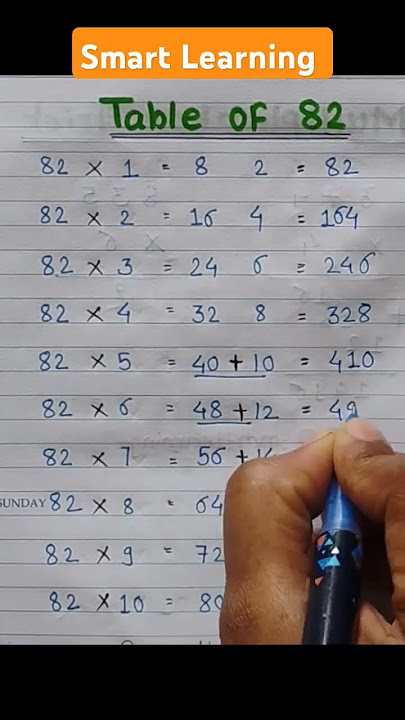 Smart Learning
Table of 82
82 × 1 = 8 2 = 82
82 × 2 = 16 4 = 164
82 × 3 = 24 6 = 246
82 × 4 = 32 8 = 328
82 × 5 = 40 + 10 = 410
82 × 6 = 48 + 12 = 49
82 × 7 = 56 +
SUNDAY 82 × 8 = 64
82 × 9 = 72
82 × 10 = 80